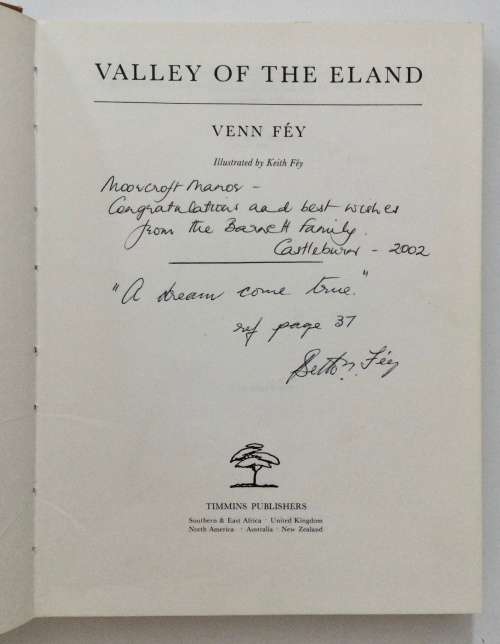 VALLEY OF THE ELAND
VENN FÉY
Illustrated by Keith Féy
Moorcroft Manor –
Congratulations and best wishes
from the Barnett Family.
Castleburn – 2002
"A dream come true."
ref page 37
Féy
TIMMINS PUBLISHERS
Southern & East Africa · United Kingdom
North America · Australia · New Zealand